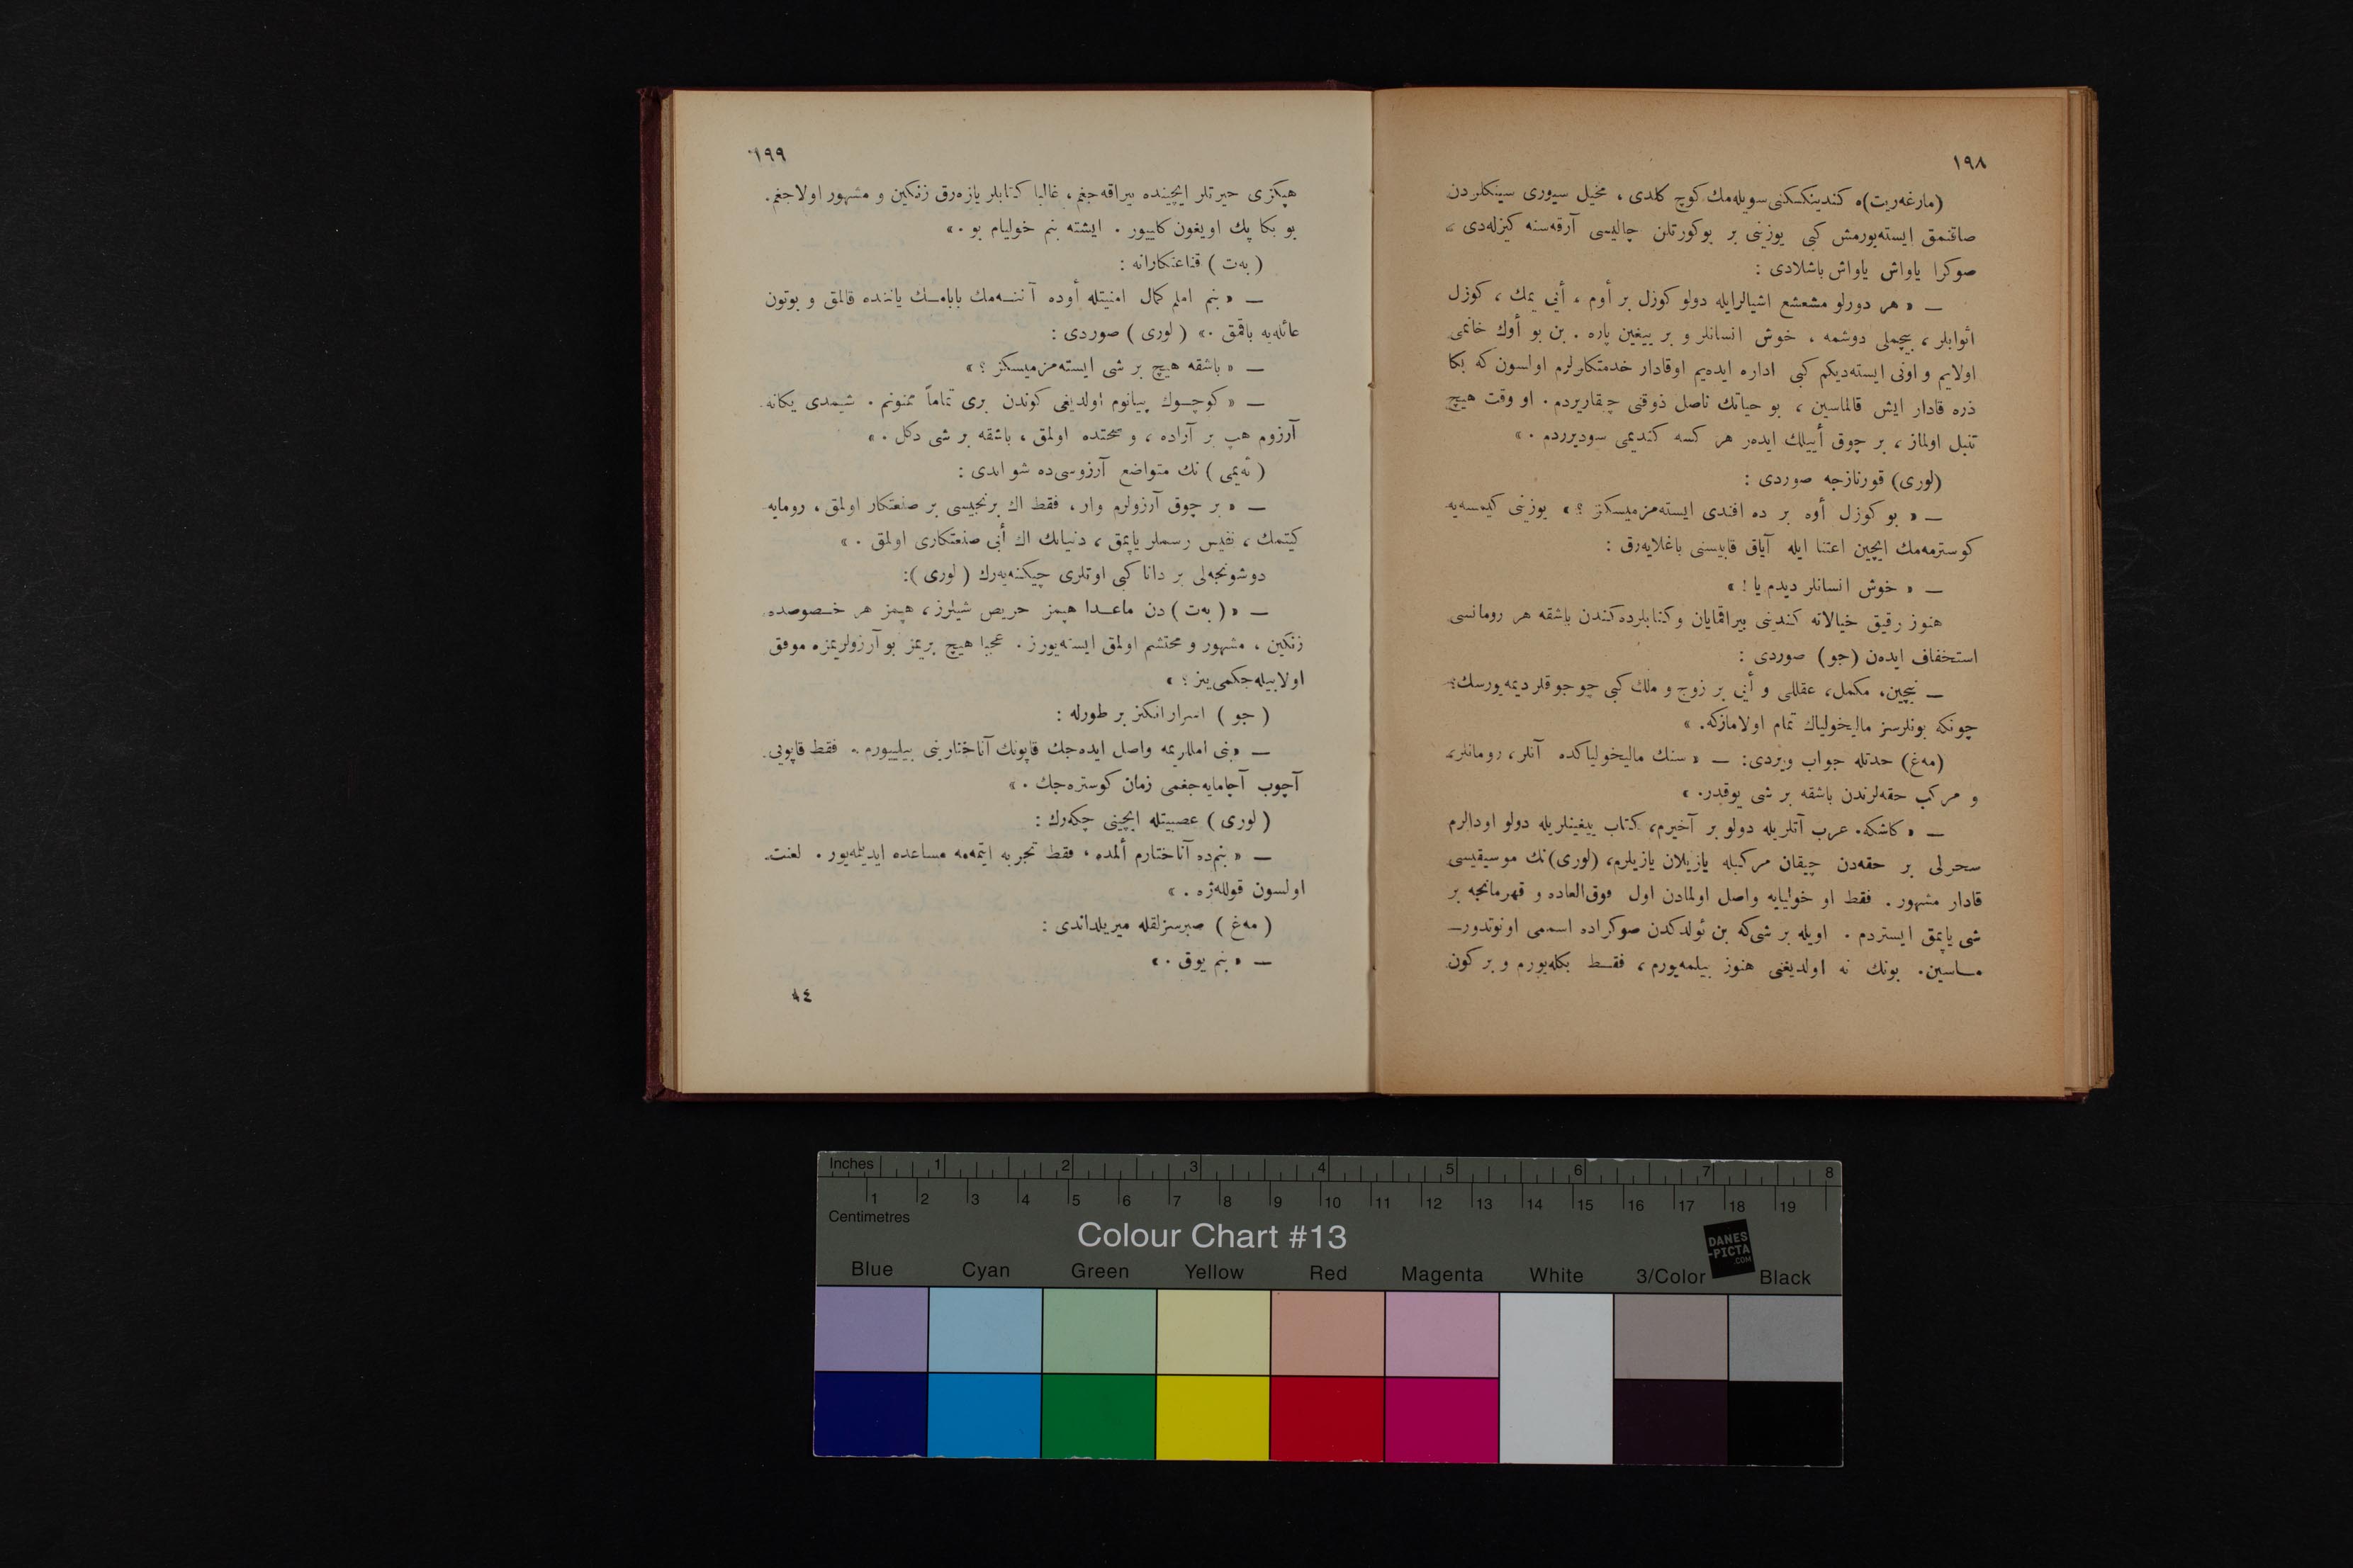 ١٩٨
(مارغه‌ریت)ه كندینكسكنی سویله‌مك كوچ كلدی ، مخیل سیوری سینكلردن
صاقنمق ایسته‌یورمش كبی یوزینی بر بوكورتلن چالیسی آرقه‌سنه كیزله‌دی ،
صوكرا یاواش یاواش باشلادی :
— « هر دورلو مشعشع اشیالرایله دولو كوزل بر أوم ، أیی یمك ، كوزل
اثوابلر ، بیچملی دوشمه ، خوش انسانلر و بر ییغین پاره . بن بو أوك خانمی
اولایم و اونی ایسته‌دیكم كبی اداره ایده‌یم اوقادار خدمتكارلرم اولسون كه بكا
ذره قادار ایش قالماسین ، بو حیاتك ناصل ذوقنی چیقاریردم . او وقت هیچ
تنبل اولماز ، بر چوق أییلك ایده‌ر هر كسه كندیمی سودیرردم . »
(لوری) قورنازجه صوردی :
— « بو كوزل أوه بر ده افندی ایسته‌مزمیسكز ؟ » یوزینی كیمسه‌یه
كوسترمه‌مك ایچین اعتنا ایله آیاق قابیسنی باغلایه‌رق :
— « خوش انسانلر دیدم یا ! »
هنوز رقیق خیالاته كندینی بیراقمایان و كتابلرده‌كندن باشقه هر رومانسی
استخفاف ایده‌ن (جو) صوردی :
— نیچین، مكمل، عقللی و أیی بر زوج و ملك كبی چوجوقلر دیمه‌یورسك؛
چونكه بونلرسز مالیخولیاك تمام اولامازكه. »
(مه‌غ) حدتله جواب ویردی: — « سنك مالیخولیاكده آتلر، رومانلر،
و مركب حقه‌لرندن باشقه بر شی یوقدر. »
— « كاشكه. عرب آتلریله دولو بر آخیرم، كتاب ییغینلریله دولو اودالرم
سحرلی بر حقه‌دن چیقان مركبله یازیلان یازیلرم، (لوری)نك موسیقیسی
قادار مشهور . فقط او خولیایه واصل اولمادن اول فوق‌العاده و قهرمانجه بر
شی یاپمق ایستردم . اویله بر شی‌كه بن ئولدكدن صوكراده اسممی اونوتدور—
ماسین. بونك نه اولدیغنی هنوز بیلمه‌یورم، فقط بكله‌یورم و بر كون
١٩٩
هپكزی حیرتلر ایچینده بیراقه‌جغم، غالبا كتابلر یازه‌رق زنكین و مشهور اولاجغم.
بو بكا پك اویغون كلییور . ایشته بنم خولیام بو . »
(به‌ت) قناعتكارانه :
— « بنم املم كمال امنیتله أوده آننه‌مك بابامك یاننده قالمق و بوتون
عائله‌یه باقمق . » (لوری) صوردی :
— « باشقه هیچ بر شی ایسته‌مزمیسكز ؟ »
— « كوچوك پیانوم اولدیغی كوندن بری تماماً ممنونم . شیمدی یكانه
آرزوم هپ بر آراده ، و صحتده اولمق ، باشقه بر شی دكل . »
(ئه‌یمی) نك متواضع آرزوسی‌ده شو ایدی :
— « بر چوق آرزولرم وار، فقط اك برنجیسی بر صنعتكار اولمق، رومایه
كیتمك ، نفیس رسملر یاپمق ، دنیانك اك أیی صنعتكاری اولمق . »
دوشونجه‌لی بر دانا كبی اوتلری چیكنه‌یه‌رك (لوری):
— « (به‌ت) دن ماعدا هپمز حریص شیلرز، هپمز هر خصوصده
زنكین ، مشهور و محتشم اولمق ایسته‌یورز . عجبا هیچ بریمز بو آرزولریمزه موفق
اولابیله‌جكمی‌یز ؟ »
(جو) اسرارانكیز بر طورله :
— « بنی امللریمه واصل ایده‌جك قاپونك آناختارینی بیلییورم. فقط قاپویی
آچوب آچامایه‌جغمی زمان كوستره‌جك . »
(لوری) عصبیتله ایچینی چكه‌رك :
— « بنم‌ده آناختارم ألمده، فقط تجربه ایتمه‌مه مساعده ایدیلمه‌یور . لعنت
اولسون قوللەژه . »
(مه‌غ) صبرسزلقله میریلداندی :
— « بنم یوق . »
١٤
Inches 1 2 3 4 5 6 7 8
1 2 3 4 5 6 7 8 9 10 11 12 13 14 15 16 17 18 19
Centimetres
Colour Chart #13
DANES
-PICTA
.COM
Blue Cyan Green Yellow Red Magenta White 3/Color Black